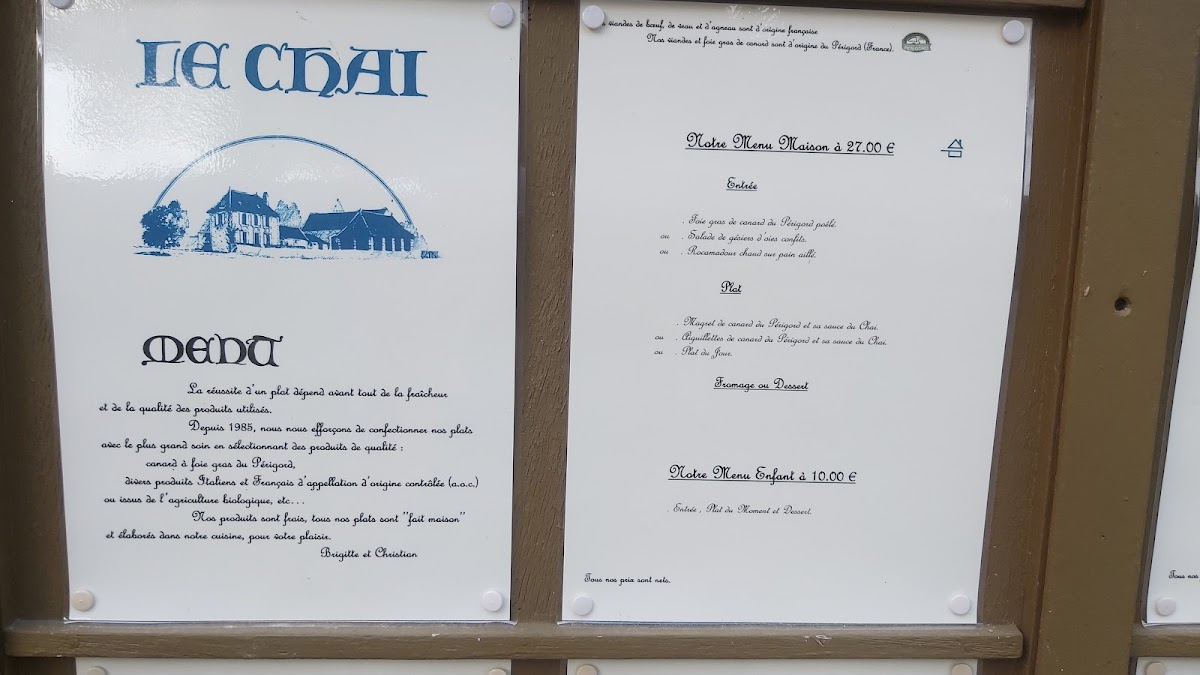 LE CHAI
MENU
La réussite d'un plat dépend avant tout de la fraîcheur
et de la qualité des produits utilisés.
Depuis 1985, nous nous efforçons de confectionner nos plats
avec le plus grand soin en sélectionnant des produits de qualité :
canard à foie gras du Périgord,
divers produits Italiens et Français d'appellation d'origine contrôlée (a.o.c.)
ou issus de l'agriculture biologique, etc...
Nos produits sont frais, tous nos plats sont "fait maison"
et élaborés dans notre cuisine, pour votre plaisir.
Brigitte et Christian
viandes de bœuf, de veau et d'agneau sont d'origine française
Nos viandes et foie gras de canard sont d'origine du Périgord (France).
Notre Menu Maison à 27.00 €
Entrée
. Foie gras de canard du Périgord poêlé.
ou . Salade de gésiers d'oies confits.
ou . Rocamadour chaud sur pain aillé.
Plat
. Magret de canard du Périgord et sa sauce du Chai.
ou . Aiguillettes de canard du Périgord et sa sauce du Chai.
ou . Plat du Jour.
Fromage ou Dessert
Notre Menu Enfant à 10.00 €
. Entrée , Plat du Moment et Dessert.
Tous nos prix sont nets.
Tous nos